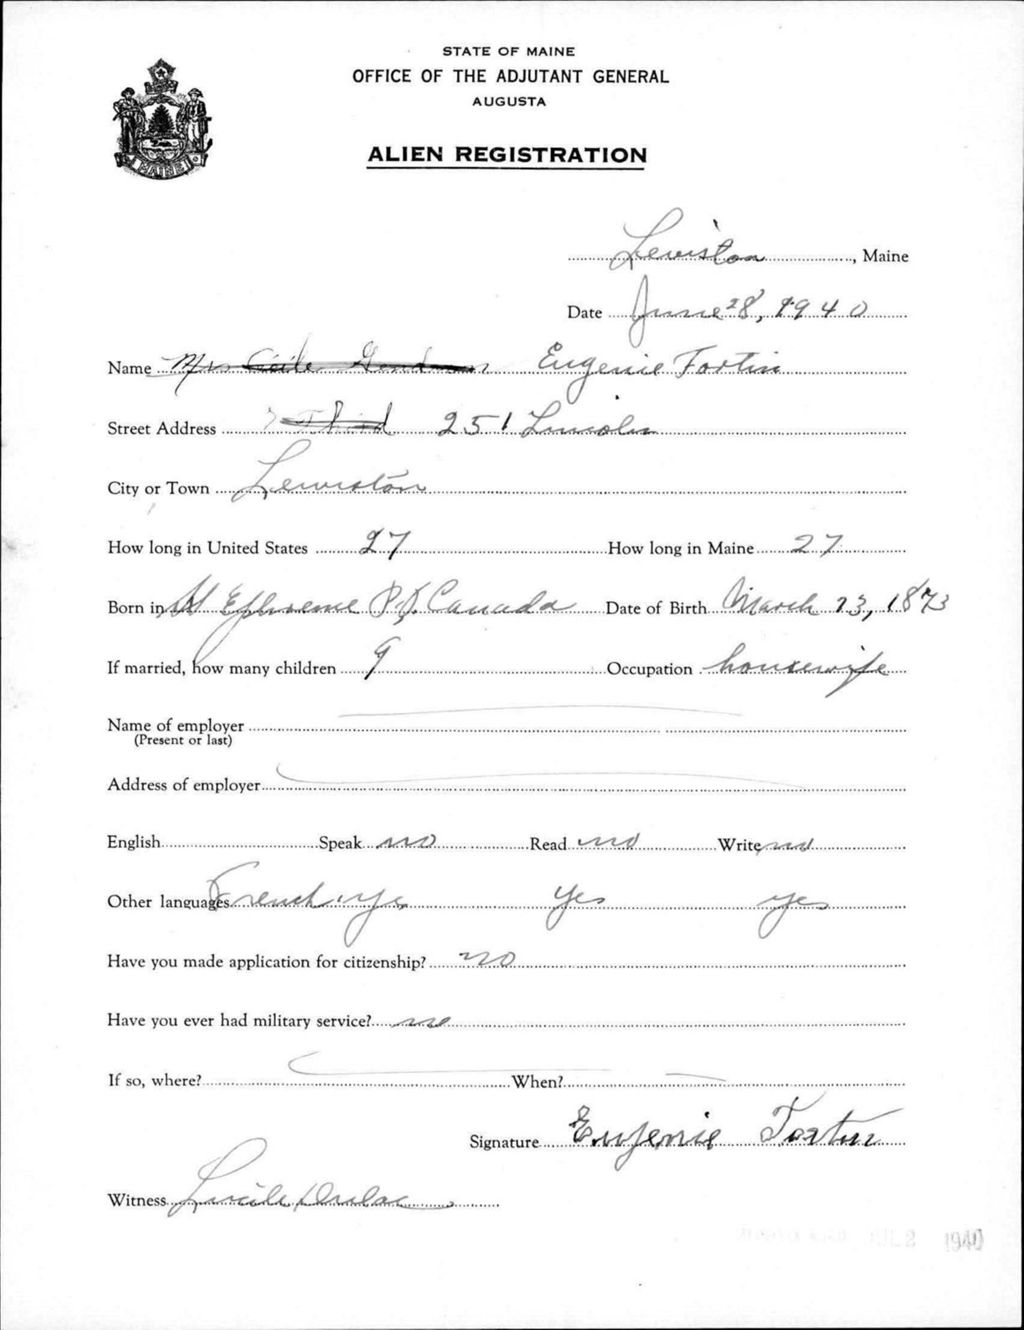 STATE OF MAINE
OFFICE OF THE ADJUTANT GENERAL
AUGUSTA
ALIEN REGISTRATION
MAINE
Lewiston, Maine
Date June 28, 1940
Name Mrs Cécile Eugenie Fortin
Street Address Third 251 Lincoln
City or Town Lewiston
How long in United States 27 How long in Maine 27
Born in St Ephreme P.Q. Canada Date of Birth March 23, 1873
If married, how many children 9 Occupation housewife
Name of employer
(Present or last)
Address of employer
English Speak no Read no Write no
Other languages French yes yes yes
Have you made application for citizenship? no
Have you ever had military service? no
If so, where? When?
Signature Eugenie Fortin
Witness Lucile Dulac
JUL 2 1940